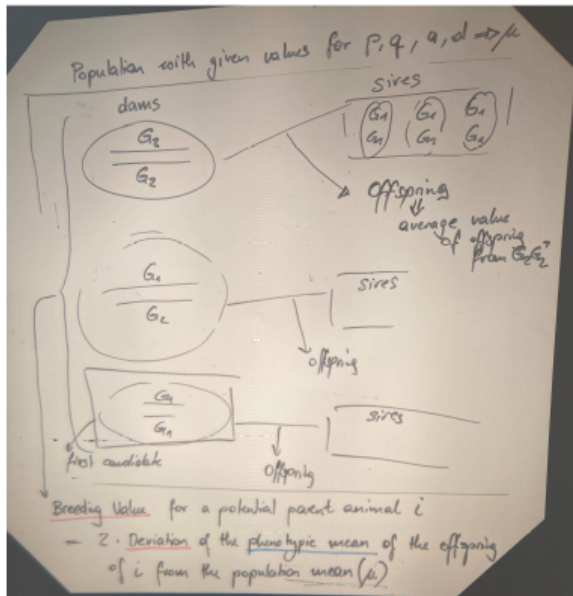 Population with given values for p, q, a, d ⇒ μ
dams
sires
G₂
G₂
G₁ G₁ G₁
offspring
average value
of offspring
from G₂G₂
G₁
G₂
sires
offspring
G₁
G₁
sires
first candidate
offspring
Breeding Value for a potential parent animal i
= 2 · Deviation of the phenotypic mean of the offspring
of i from the population mean (μ)